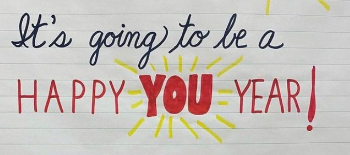 It's going to be a
HAPPY YOU YEAR!